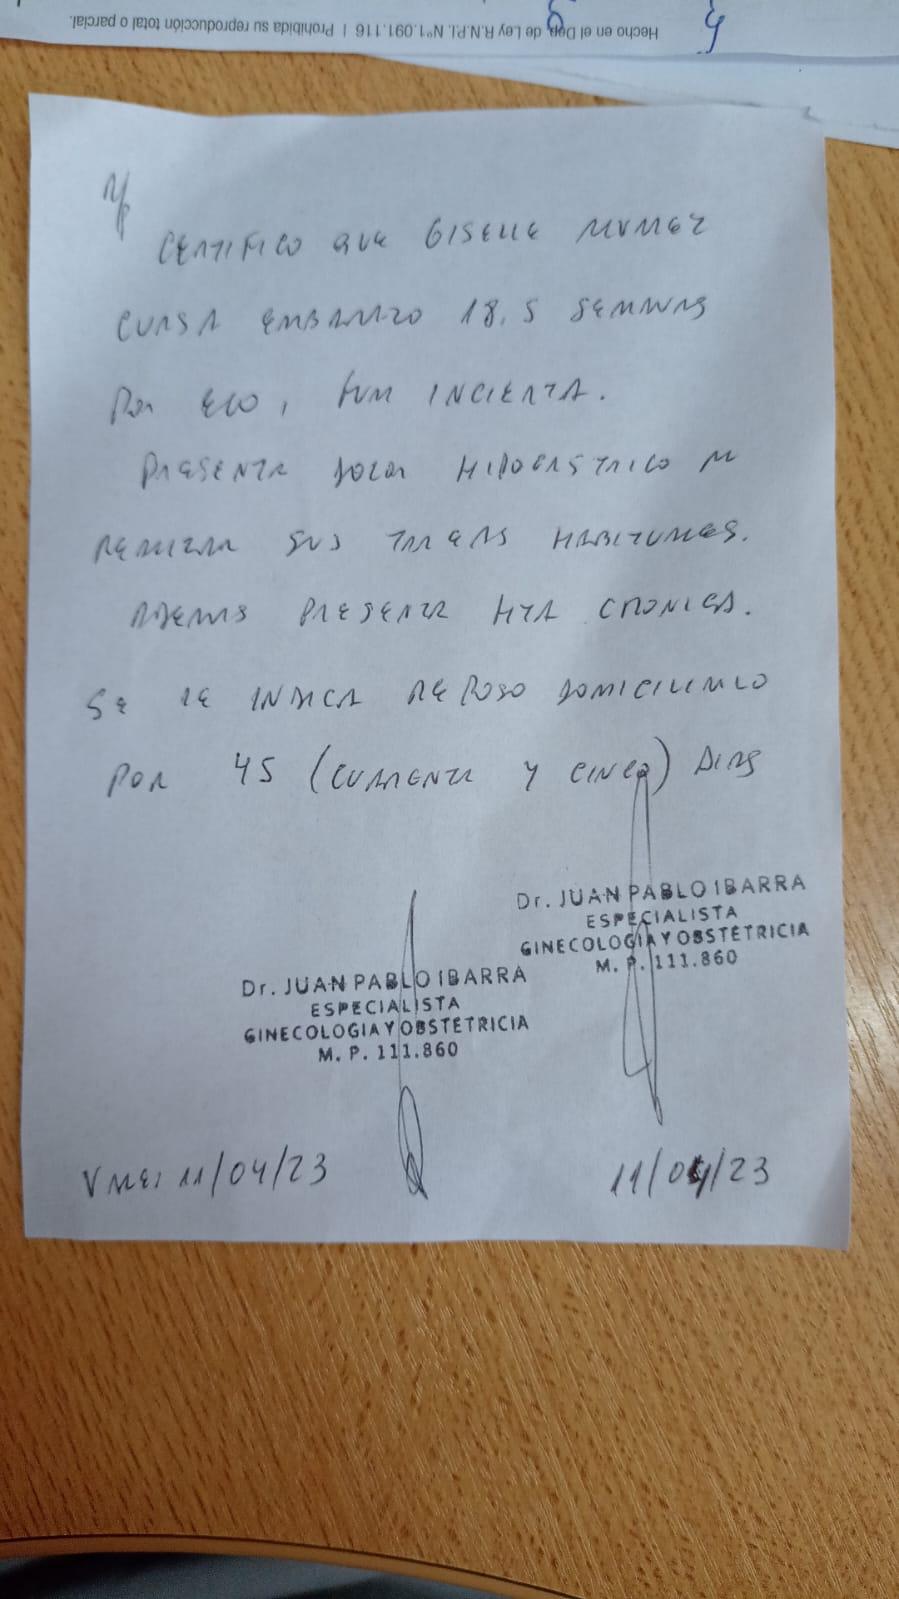 Hecho en el Dep. de Ley R.N.P.I. Nº1.091.116 | Prohibida su reproducción total o parcial.
CERTIFICO QUE GISELLE NUÑEZ
CURSA EMBARAZO 18,5 SEMANAS
POR ECO, FUM INCIERTA.
PRESENTA DOLOR HIPOGASTRICO AL
REALIZAR SUS TAREAS HABITUALES.
ADEMAS PRESENTA HTA CRONICA.
SE LE INDICA REPOSO DOMICILIARIO
POR 45 (CUARENTA Y CINCO) DIAS
Dr. JUAN PABLO IBARRA
ESPECIALISTA
GINECOLOGIA Y OBSTETRICIA
M. P. 111.860
Dr. JUAN PABLO IBARRA
ESPECIALISTA
GINECOLOGIA Y OBSTETRICIA
M. P. 111.860
VALE: 11/04/23
11/04/23